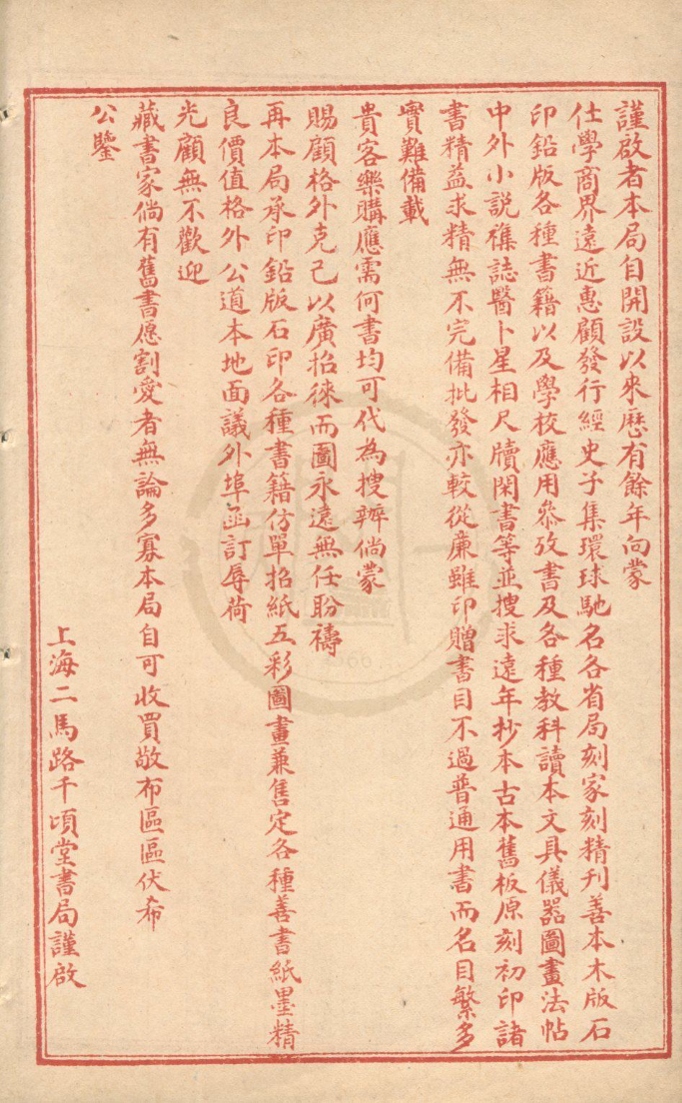 謹啟者本局自開設以來歷有餘年向蒙
仕學商界遠近惠顧發行經史子集環球馳名各省局刻家刻精刊善本木版石
印鉛版各種書籍以及學校應用叅攷書及各種教科讀本文具儀器圖畫法帖
中外小說襍誌醫卜星相尺牘閑書等並搜求遠年抄本古本舊板原刻初印諸
書精益求精無不完備批發亦較從廉雖印贈書目不過普通用書而名目繁多
實難備載
貴客樂購應需何書均可代為搜辦倘蒙
賜顧格外克己以廣招徠而圖永遠無任盼禱
再本局承印鉛版石印各種書籍仿單招紙五彩圖畫兼售定各種善書紙墨精
良價值格外公道本地面議外埠函訂辱荷
光顧無不歡迎
藏書家倘有舊書愿割愛者無論多寡本局自可收買敬布區區伏希
公鑒
上海二馬路千頃堂書局謹啟